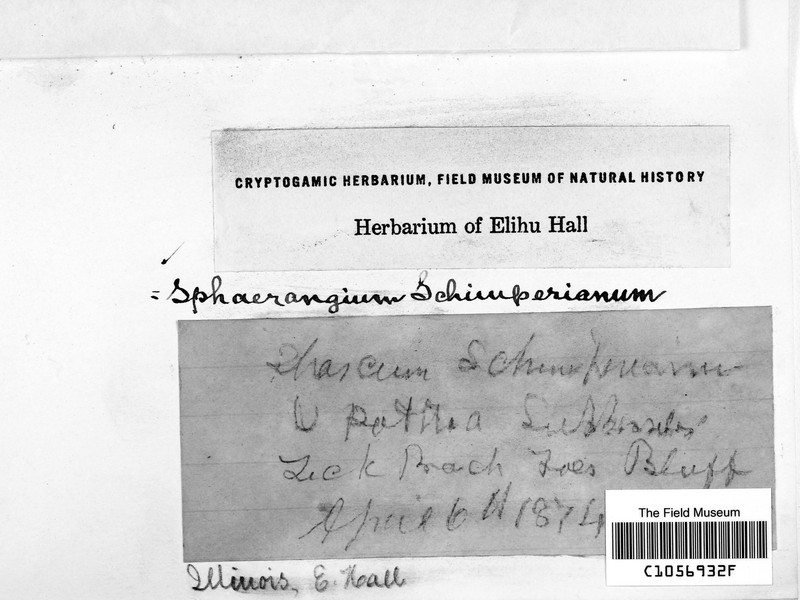 CRYPTOGAMIC HERBARIUM, FIELD MUSEUM OF NATURAL HISTORY
Herbarium of Elihu Hall
= Sphaerangium Schimperianum
Phascum Schimperianum
Bluff
April 6th 1874
The Field Museum
C1056932F
Illinois, E. Hall